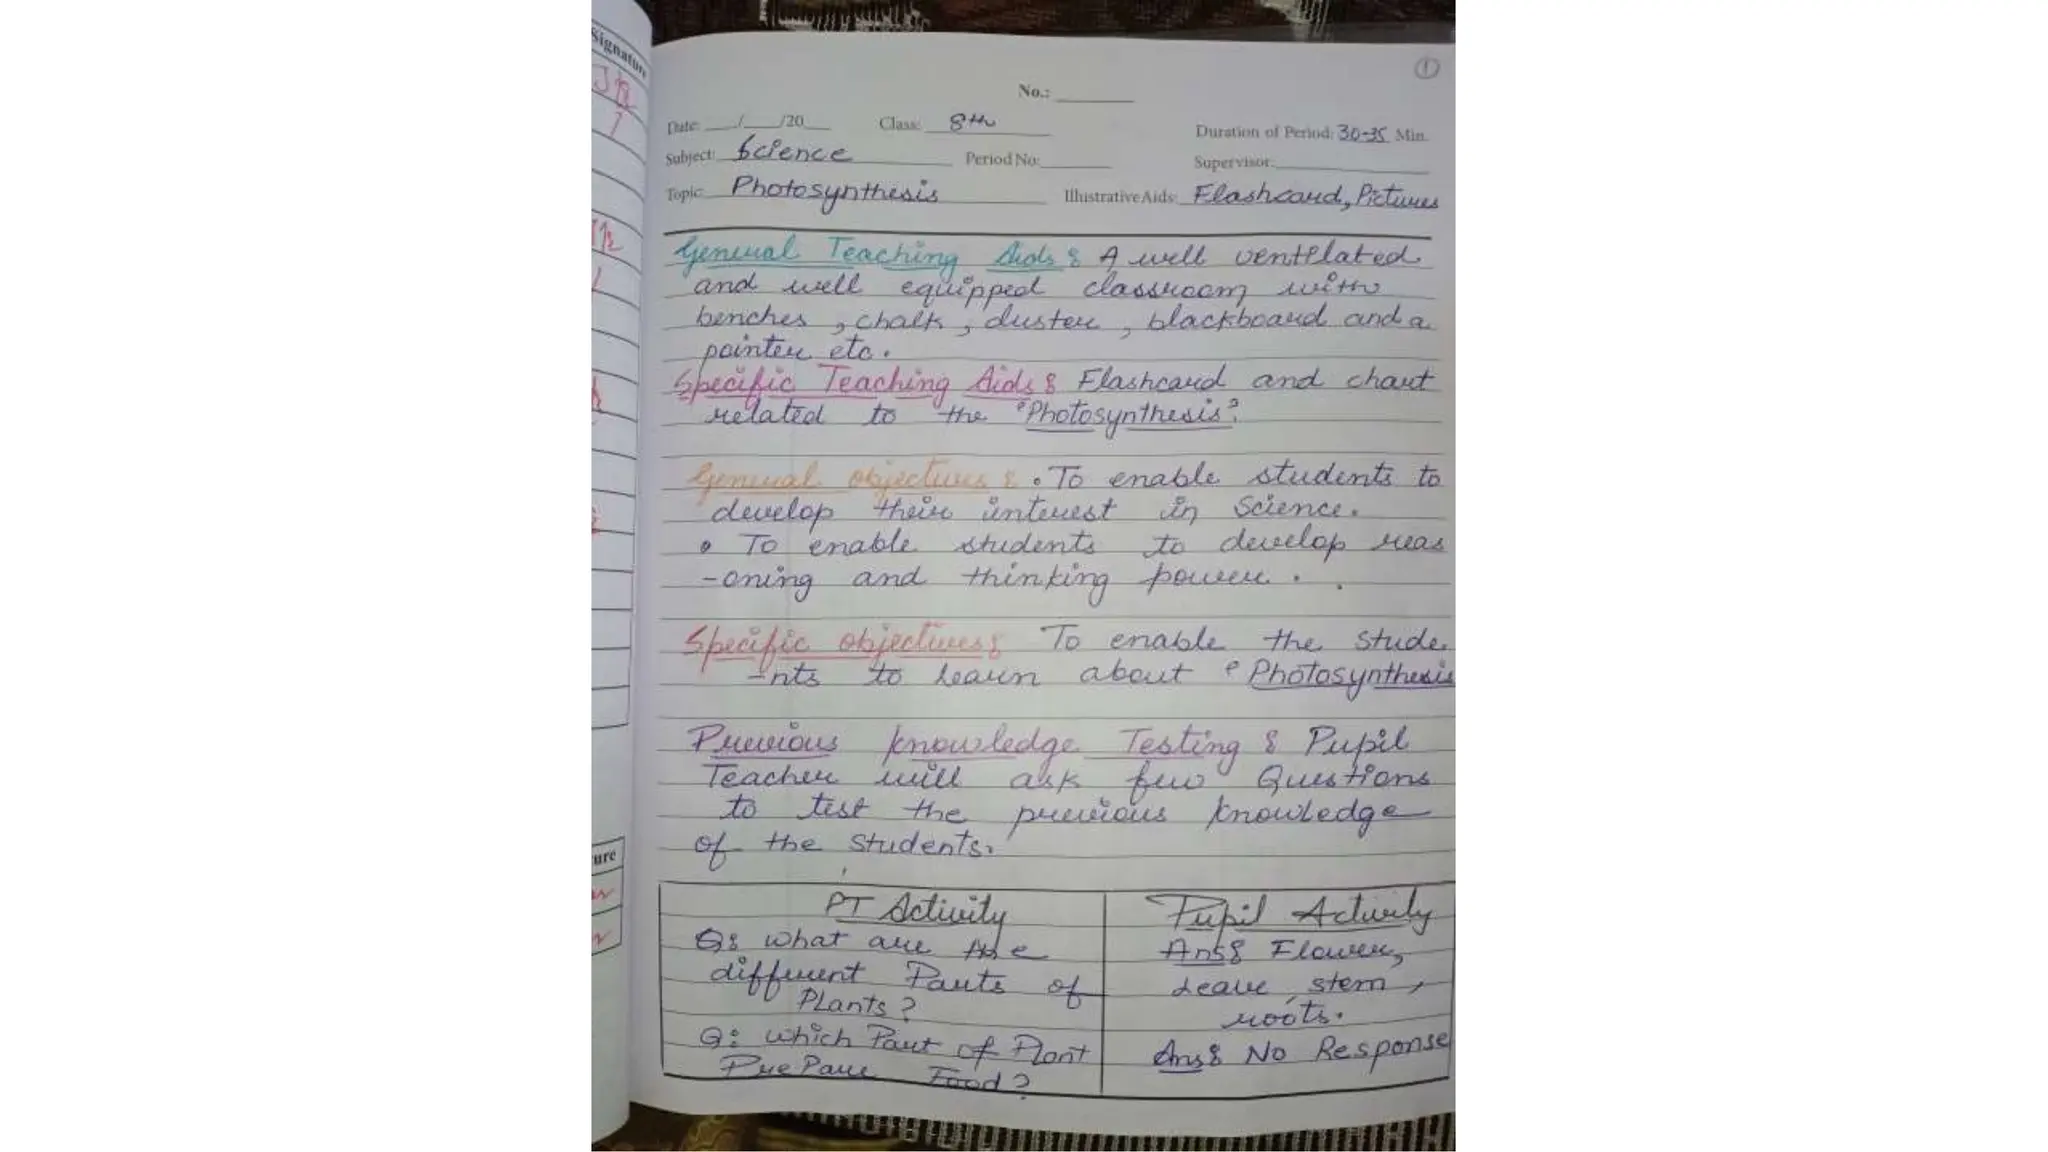 Signature
①
No.: ______
Date: ___/___/20___ Class: 8th Duration of Period: 30-35 Min.
Subject: Science Period No: ______ Supervisor: ______
Topic: Photosynthesis Illustrative Aids: Flashcard, Pictures
General Teaching Aids : A well ventilated
and well equipped classroom with
benches, chalk, duster, blackboard and a
pointer etc.
Specific Teaching Aids : Flashcard and chart
related to the 'Photosynthesis'.
General objectives : • To enable students to
develop their interest in Science.
• To enable students to develop reas
-oning and thinking power.
Specific objectives : To enable the stude
-nts to learn about 'Photosynthesis
Previous knowledge Testing : Pupil
Teacher will ask few Questions
to test the previous knowledge
of the students.
ure
PT Activity
Q: What are the
different Parts of
Plants?
Q: Which Part of Plant
PrePare Food?
Pupil Activity
Ans: Flower,
Leave, stem,
roots.
Ans: No Response